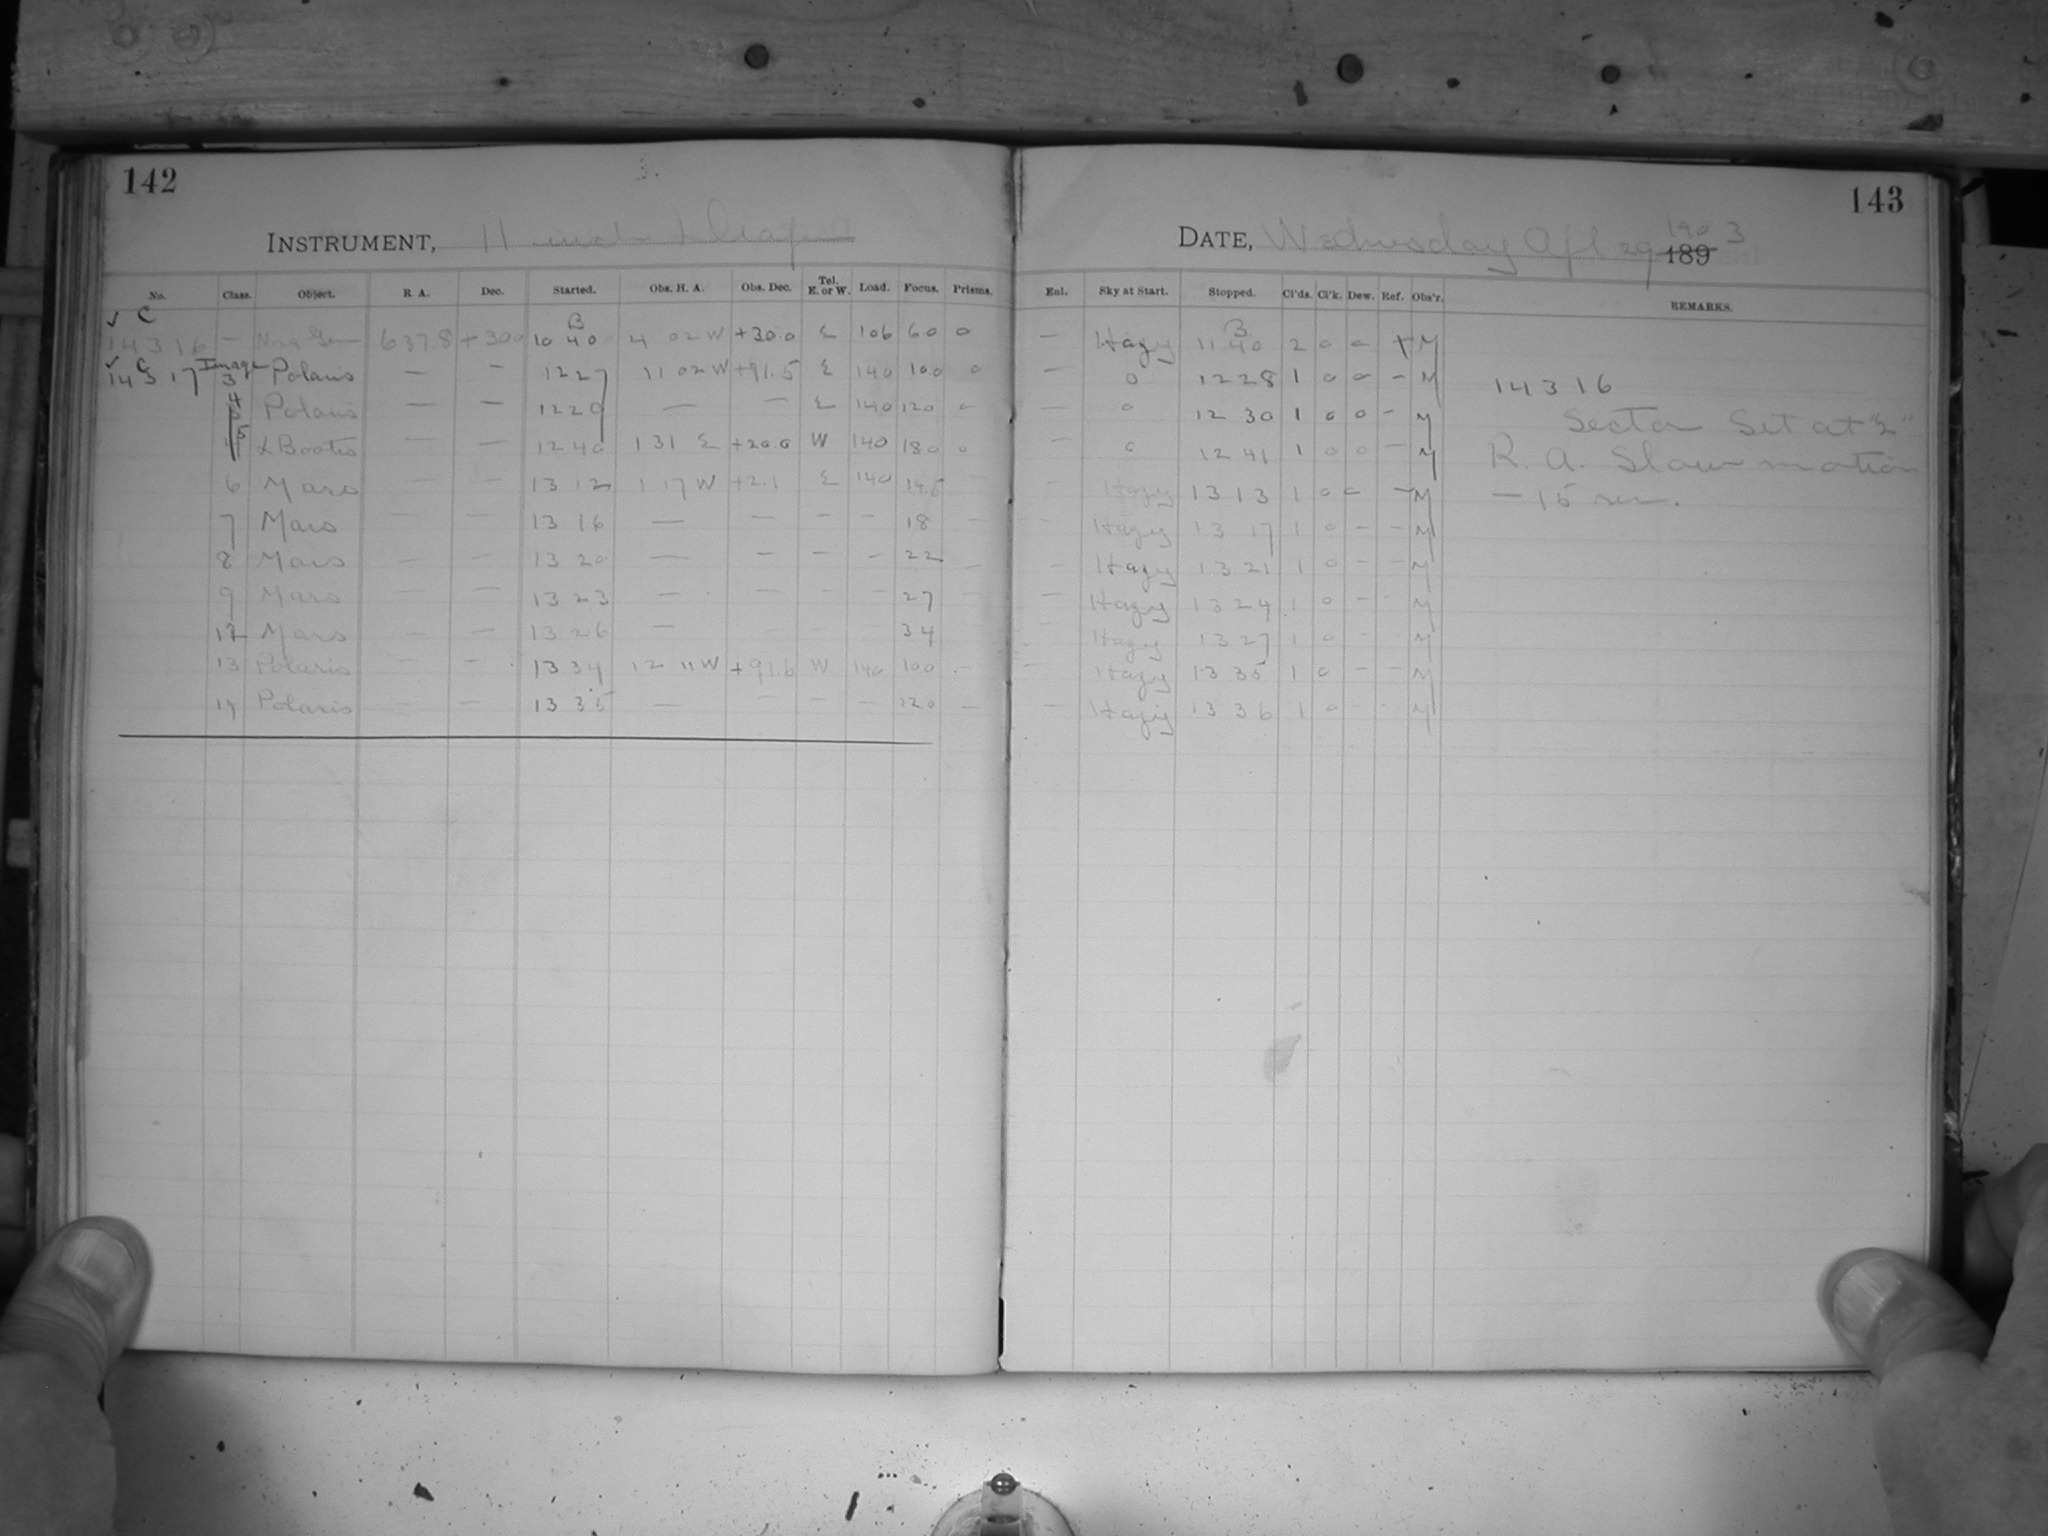 142
INSTRUMENT, 11 inch Draper
No. Class. Object. R A. Dec. Started. Obs. H. A. Obs. Dec. Tel. E. or W. Load. Focus. Prisms.
✓ C B
14316 — Nov Gem 637.8 +30.0 10 40 4 02 W +30.0 E 106 60 0
✓ C Image
14317 3 Polaris — — 12 27 11 02 W +91.5 E 140 100 0
4 Polaris — — 12 29 — — E 140 120 0
5 α Bootis — — 12 40 1 31 E +20.0 W 140 180 0
6 Mars — — 13 12 1 17 W +2.1 E 140 14.5 —
7 Mars — — 13 16 — — — — 18 —
8 Mars — — 13 20 — — — — 22 —
9 Mars — — 13 23 — — — — 27 —
12 Mars — — 13 26 — 34
13 Polaris — — 13 34 12 11 W +91.6 W 140 100 —
14 Polaris — — 13 35 — — — — 120 —
143
DATE, Wednesday Apl 29 1903 189
Enl. Sky at Start. Stopped. Cl'ds. Cl'k. Dew. Ref. Obs'r. REMARKS.
B
— Hazy 11 40 2 0 0 + M
— 0 12 28 1 0 0 — M 14316
— 0 12 30 1 0 0 — M Sector Set at "2"
— 0 12 41 1 0 0 — M R. A. Slow motion
— Hazy 13 13 1 0 0 — M — 15 sec.
— Hazy 13 17 1 0 — — M
— Hazy 13 21 1 0 — — M
— Hazy 13 24 1 0 — — M
— Hazy 13 27 1 0 — — M
— Hazy 13 35 1 0 — — M
— Hazy 13 36 1 0 — — M